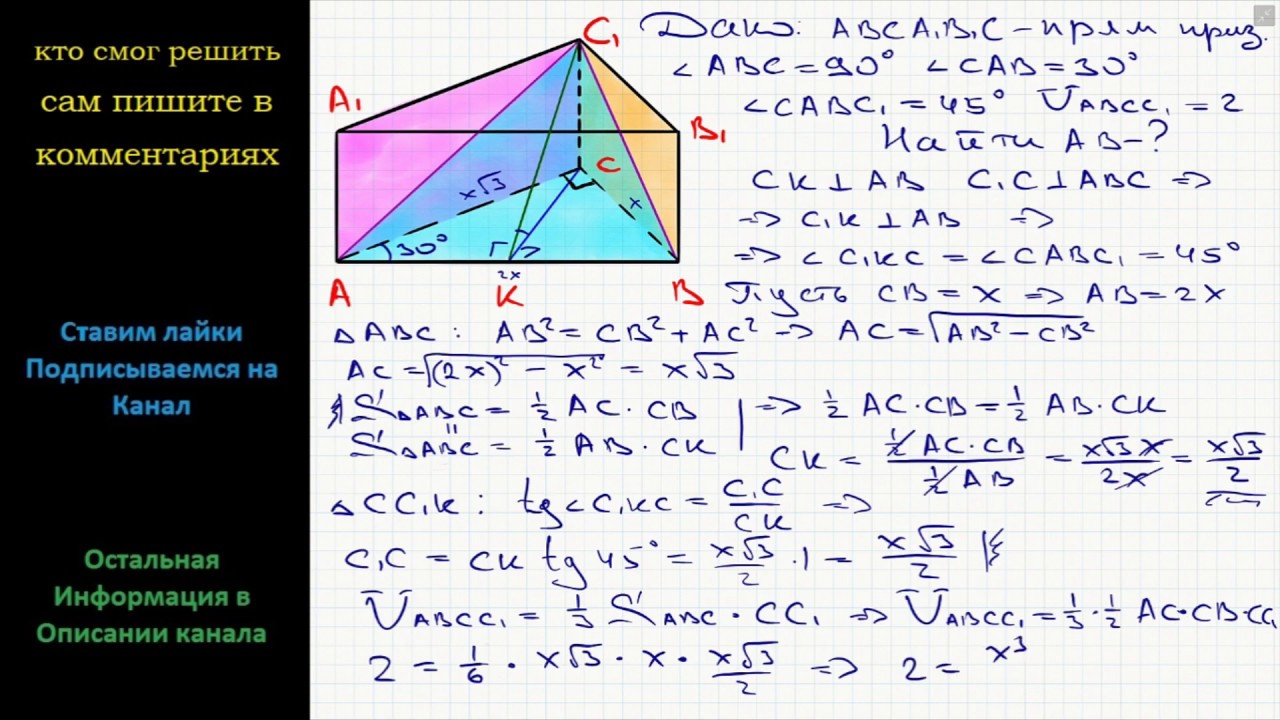 кто смог решить
сам пишите в
комментариях
Ставим лайки
Подписываемся на
Канал
Остальная
Информация в
Описании канала
A₁
C₁
B₁
C
x√3
x
30°
2x
A
K
B
Дано: ABCA₁B₁C - прям приз.
∠ABC = 90° ∠CAB = 30°
∠CABC₁ = 45° V_ABCC₁ = 2
Найти AB - ?
CK ⊥ AB C₁C ⊥ ABC =>
=> C₁K ⊥ AB =>
=> ∠C₁KC = ∠CABC₁ = 45°
Пусть CB = x => AB = 2x
△ABC: AB² = CB² + AC² => AC = √(AB² - CB²)
AC = √((2x)² - x²) = x√3
S△ABC = 1/2 AC · CB | => 1/2 AC · CB = 1/2 AB · CK
S△ABC = 1/2 AB · CK
CK = (1/2 AC · CB)/(1/2 AB) = (x√3 x)/(2x) = x√3/2
△CC₁K: tg∠C₁KC = C₁C/CK =>
C₁C = CK tg 45° = x√3/2 · 1 = x√3/2
V_ABCC₁ = 1/3 S_ABC · CC₁ => V_ABCC₁ = 1/3 · 1/2 AC · CB · CC₁
2 = 1/6 · x√3 · x · x√3/2 => 2 = x³